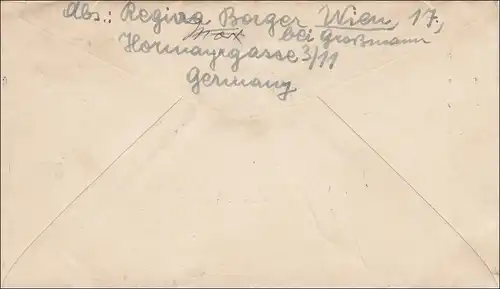 Abs.: Regina Borger Wien, 17,
bei Großmann
Hormayrgasse 3/11
Germany